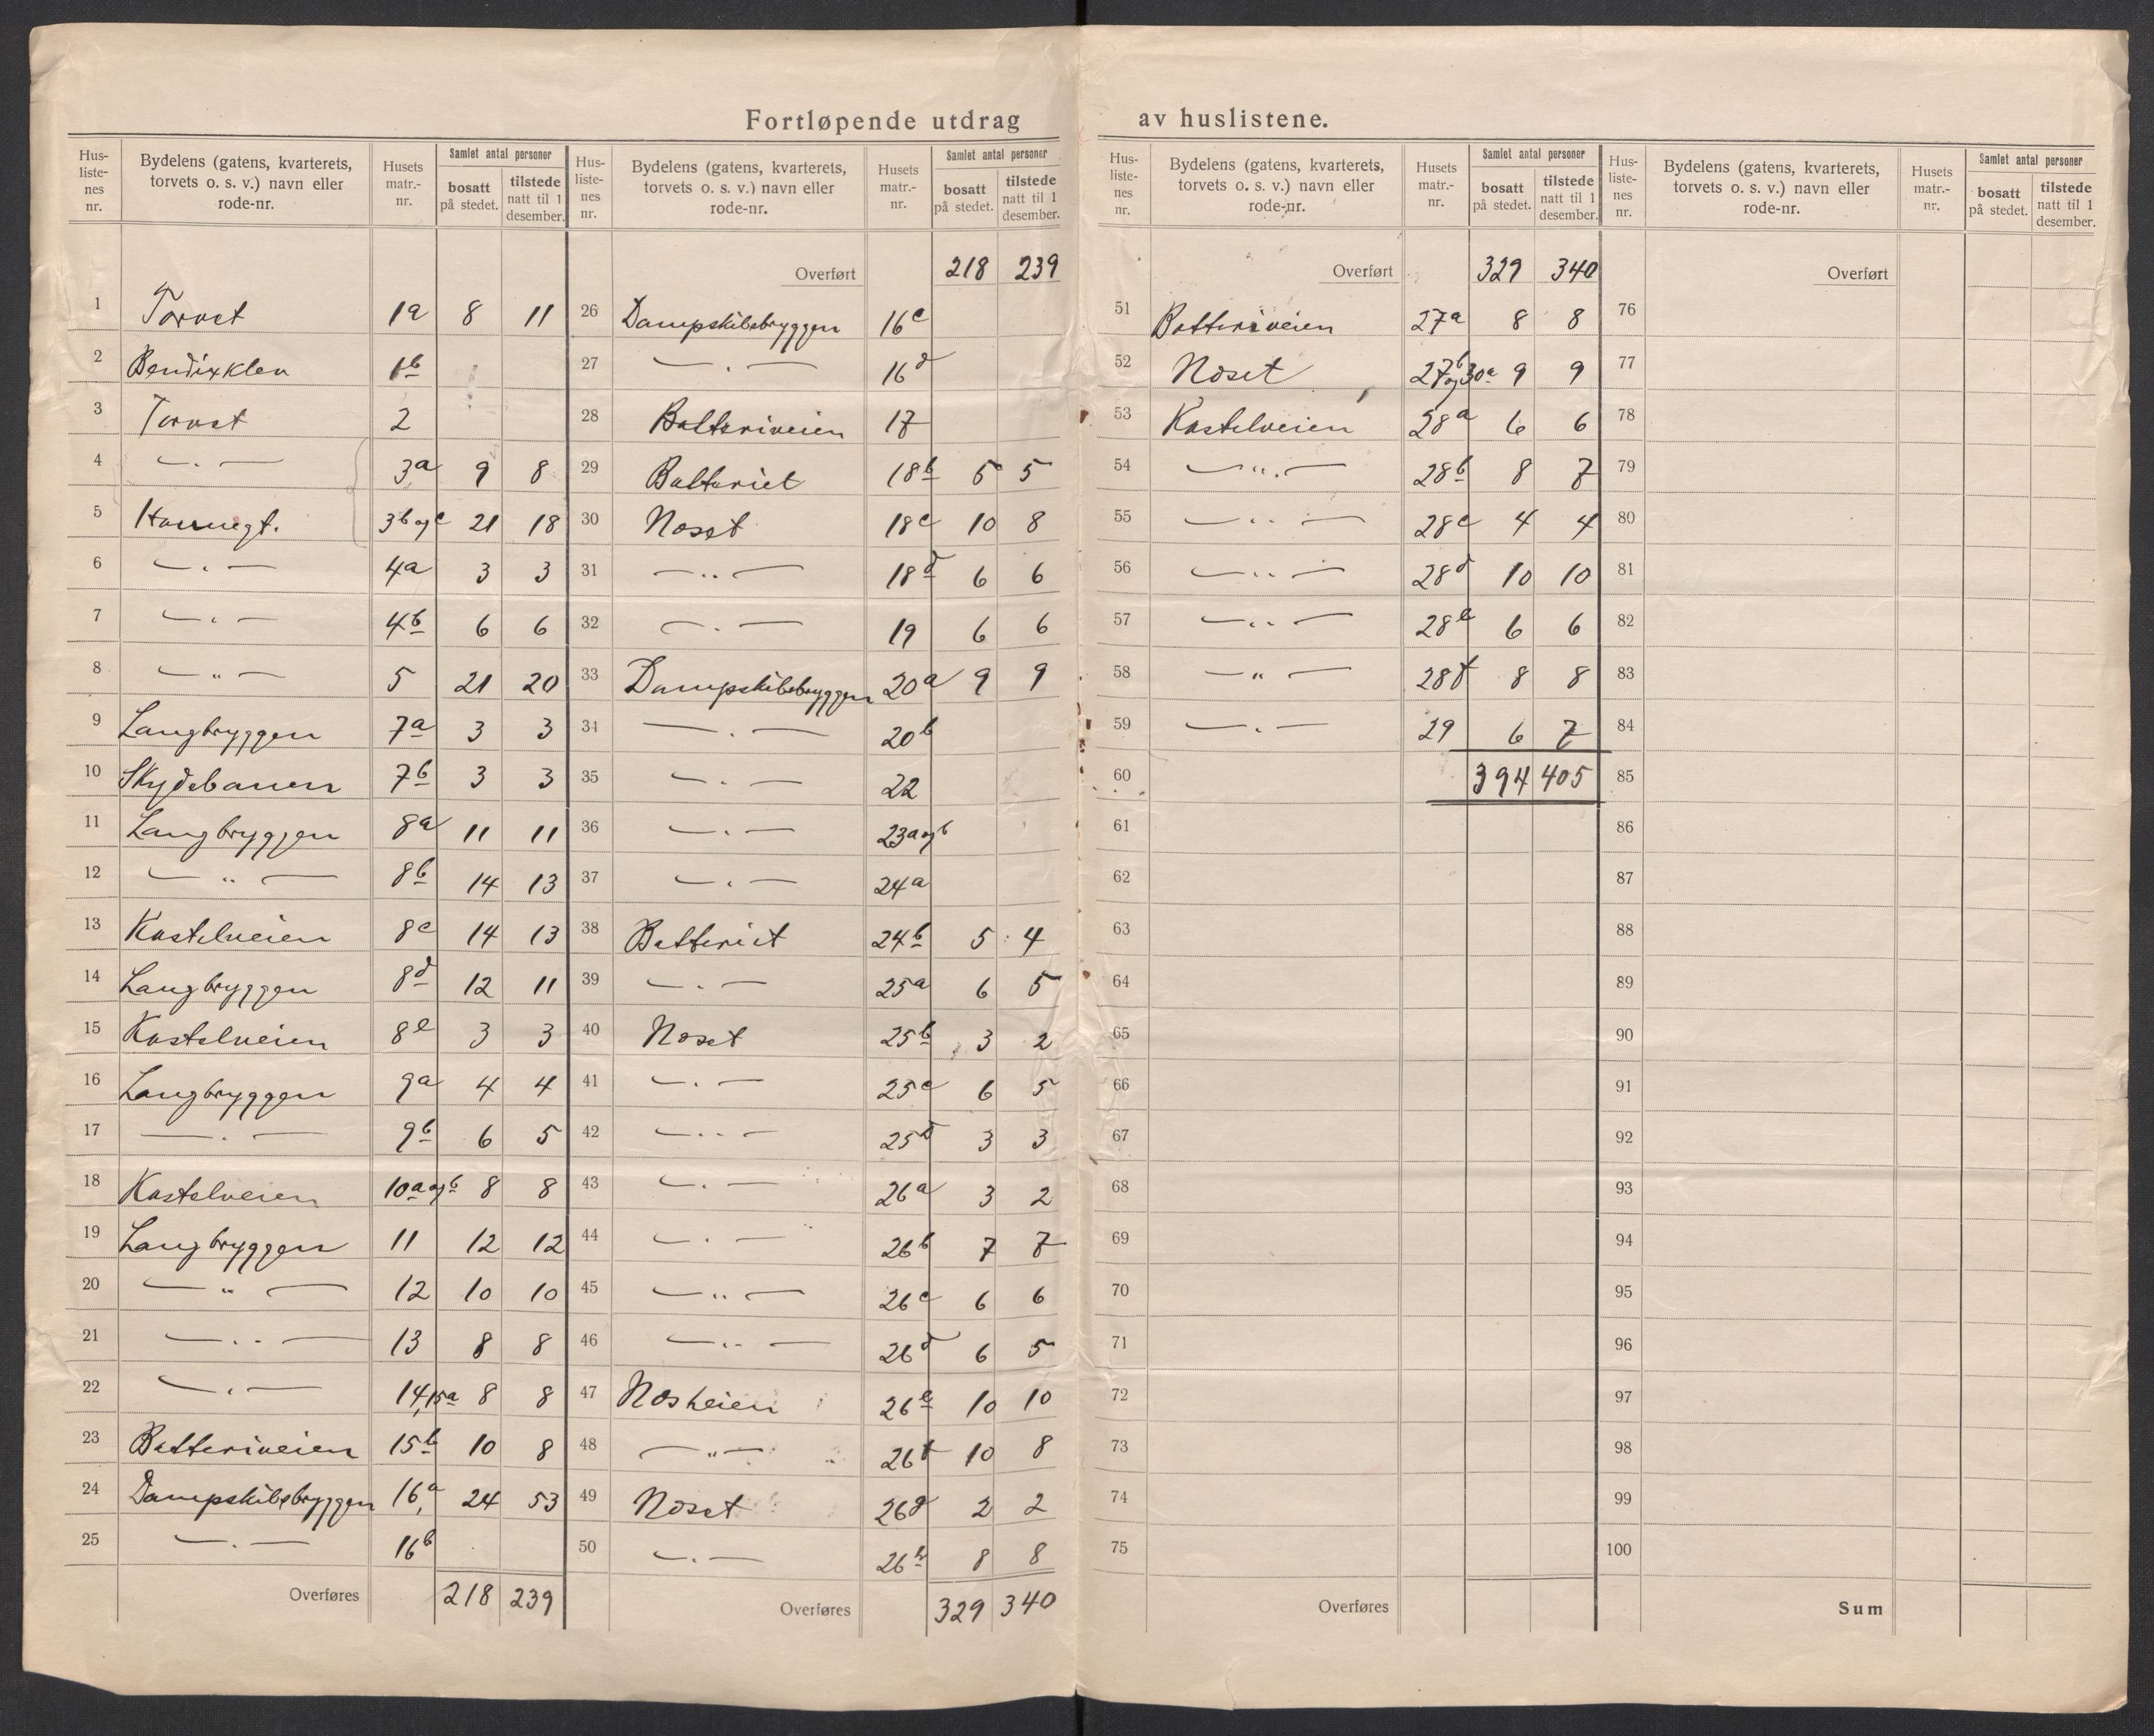 Fortløpende utdrag av huslistene.
Hus-listenes nr. | Bydelens (gatens, kvarterets, torvets o. s. v.) navn eller rode-nr. | Husets matr.-nr. | Samlet antal personer bosatt på stedet. | tilstede natt til 1 desember.
1 Torvet 1a 8 11
2 Bendixklev 1b
3 Torvet 2
4 —„— 3a 9 8
5 Havnegt. 3b og c 21 18
6 —„— 4a 3 3
7 —„— 4b 6 6
8 —„— 5 21 20
9 Langbryggen 7a 3 3
10 Skydebanen 7b 3 3
11 Langbryggen 8a 11 11
12 —„— 8b 14 13
13 Kastelveien 8c 14 13
14 Langbryggen 8d 12 11
15 Kastelveien 8e 3 3
16 Langbryggen 9a 4 4
17 —„— 9b 6 5
18 Kastelveien 10a og b 8 8
19 Langbryggen 11 12 12
20 —„— 12 10 10
21 —„— 13 8 8
22 —„— 14, 15a 8 8
23 Batteriveien 15b 10 8
24 Dampskibsbryggen 16a 24 53
25 —„— 16b
Overføres 218 239
Hus-listenes nr. | Bydelens (gatens, kvarterets, torvets o. s. v.) navn eller rode-nr. | Husets matr.-nr. | Samlet antal personer bosatt på stedet. | tilstede natt til 1 desember.
Overført 218 239
26 Dampskibsbryggen 16c
27 —„— 16d
28 Batteriveien 17
29 Batteriet 18b 5 5
30 Næset 18c 10 8
31 —„— 18d 6 6
32 —„— 19 6 6
33 Dampskibsbryggen 20a 9 9
34 —„— 20b
35 —„— 22
36 —„— 23a og b
37 —„— 24a
38 Batteriet 24b 5 4
39 —„— 25a 6 5
40 Næset 25b 3 2
41 —„— 25c 6 5
42 —„— 25d 3 3
43 —„— 26a 3 2
44 —„— 26b 7 7
45 —„— 26c 6 6
46 —„— 26d 6 5
47 Næsheien 26e 10 10
48 —„— 26f 10 8
49 Næset 26g 2 2
50 —„— 26h 8 8
Overføres 329 340
Hus-listenes nr. | Bydelens (gatens, kvarterets, torvets o. s. v.) navn eller rode-nr. | Husets matr.-nr. | Samlet antal personer bosatt på stedet. | tilstede natt til 1 desember.
Overført 329 340
51 Batteriveien 27a 8 8
52 Næset 27b og 30a 9 9
53 Kastelveien 28a 6 6
54 —„— 28b 8 7
55 —„— 28c 4 4
56 —„— 28d 10 10
57 —„— 28e 6 6
58 —„— 28f 8 8
59 —„— 29 6 7
60 394 405
61
62
63
64
65
66
67
68
69
70
71
72
73
74
75
Overføres
Hus-listenes nr. | Bydelens (gatens, kvarterets, torvets o. s. v.) navn eller rode-nr. | Husets matr.-nr. | Samlet antal personer bosatt på stedet. | tilstede natt til 1 desember.
Overført
76
77
78
79
80
81
82
83
84
85
86
87
88
89
90
91
92
93
94
95
96
97
98
99
100
Sum